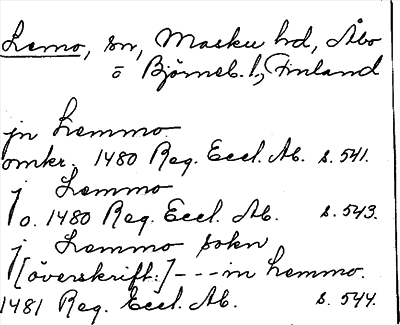 Lemo, sn, Masku hd, Åbo
o Björneb. l, Finland
jn Lemmo
omkr. 1480 Reg. Eccl. Ab. s. 541.
j Lemmo
o. 1480 Reg. Eccl. Ab. s. 543.
j Lemmo sokn
[överskrift:] --- in Lemmo.
1481 Reg. Eccl. Ab. s. 544.